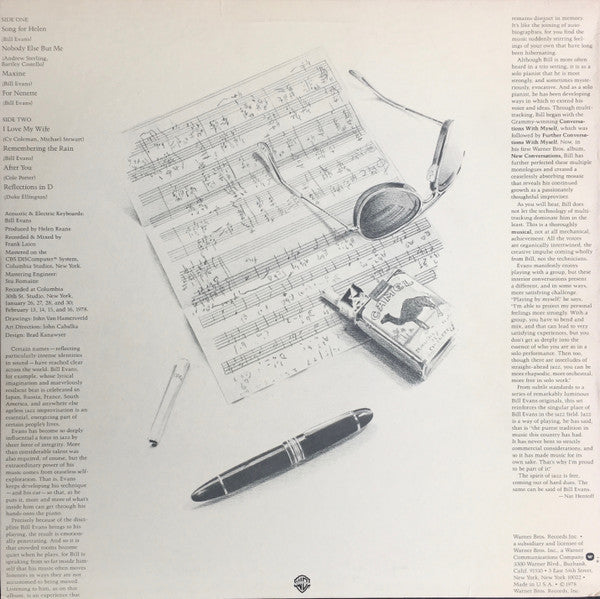 SIDE ONE
Song for Helen
(Bill Evans)
Nobody Else But Me
(Andrew Sterling,
Bartley Costello)
Maxine
(Bill Evans)
For Nenette
(Bill Evans)
SIDE TWO
I Love My Wife
(Cy Coleman, Michael Stewart)
Remembering the Rain
(Bill Evans)
After You
(Cole Porter)
Reflections in D
(Duke Ellington)
Acoustic & Electric Keyboards:
Bill Evans
Produced by Helen Keane
Recorded & Mixed by
Frank Laico
Mastered on the
CBS DISComputer™ System,
Columbia Studios, New York.
Mastering Engineer:
Stu Romaine
Recorded at Columbia
30th St. Studio, New York,
January 26, 27, 28, and 30;
February 13, 14, 15, and 16, 1978.
Drawings: John Van Hamersveld
Art Direction: John Cabalka
Design: Brad Kanawyer
Certain names—reflecting
particularly intense identities
in sound—have reached clear
across the world. Bill Evans,
for example, whose lyrical
imagination and marvelously
resilient beat is celebrated in
Japan, Russia, France, South
America, and anywhere else
ageless jazz improvisation is an
essential, energizing part of
certain people's lives.
Evans has become so deeply
influential a force in jazz by
sheer force of integrity. More
than considerable talent was
also required, of course, but the
extraordinary power of his
music comes from ceaseless self-
exploration. That is, Evans
keeps developing his technique
—and his ear—so that, as he
puts it, more and more of what's
inside him can get through his
hands onto the piano.
Precisely because of the disci-
pline Bill Evans brings to his
playing, the result is emotion-
ally penetrating. And so it is
that crowded rooms become
quiet when he plays, for Bill is
speaking from so far inside him-
self that his music often moves
listeners in ways they are not
accustomed to being moved.
Listening to him, as on this
album, is an experience that
remains distinct in memory.
It's like the joining of auto-
biographies, for you find the
music suddenly stirring feel-
ings of your own that have long
been hibernating.
Although Bill is more often
heard in a trio setting, it is as a
solo pianist that he is most
strongly, and sometimes myste-
riously, evocative. And as a solo
pianist, he has been developing
ways in which to extend his
voice and ideas. Through multi-
tracking, Bill began with the
Grammy-winning Conversa-
tions With Myself, which was
followed by Further Conversa-
tions With Myself. Now, in
his first Warner Bros. album,
New Conversations, Bill has
further perfected these multiple
monologues and created a
ceaselessly absorbing mosaic
that reveals his continued
growth as a passionately
thoughtful improviser.
As you will hear, Bill does
not let the technology of multi-
tracking dominate him in the
least. This is a thoroughly
musical, not at all mechanical,
achievement. All the voices
are organically intertwined, the
creative impulse coming wholly
from Bill, not the technicians.
Evans manifestly enjoys
playing with a group, but these
interior conversations present
a different, and in some ways,
more satisfying challenge.
"Playing by myself," he says,
"I'm able to protect my personal
feelings more strongly. With a
group, you have to bend and
mix, and that can lead to very
satisfying experiences, but you
don't get as deeply into the
essence of who you are as in a
solo performance. Then too,
though there are interludes of
straight-ahead jazz, you can be
more rhapsodic, more orchestral,
more free in solo work."
From subtle standards to a
series of remarkably luminous
Bill Evans originals, this set
reinforces the singular place of
Bill Evans in the jazz field. Jazz
is a way of playing, he has said,
that is "the purest tradition in
music this country has had.
It has never bent to strictly
commercial considerations, and
so it has made music for its
own sake. That's why I'm proud
to be part of it."
The spirit of jazz is free,
coming out of hard dues. The
same can be said of Bill Evans.
—Nat Hentoff
CAMEL
Warner Bros. Records Inc. •
a subsidiary and licensee of
Warner Bros. Inc., a Warner
Communications Company
3300 Warner Blvd., Burbank,
Calif. 91510 • 3 East 54th Street,
New York, New York 10022 •
Made in U.S.A. • © 1978
Warner Bros. Records Inc.